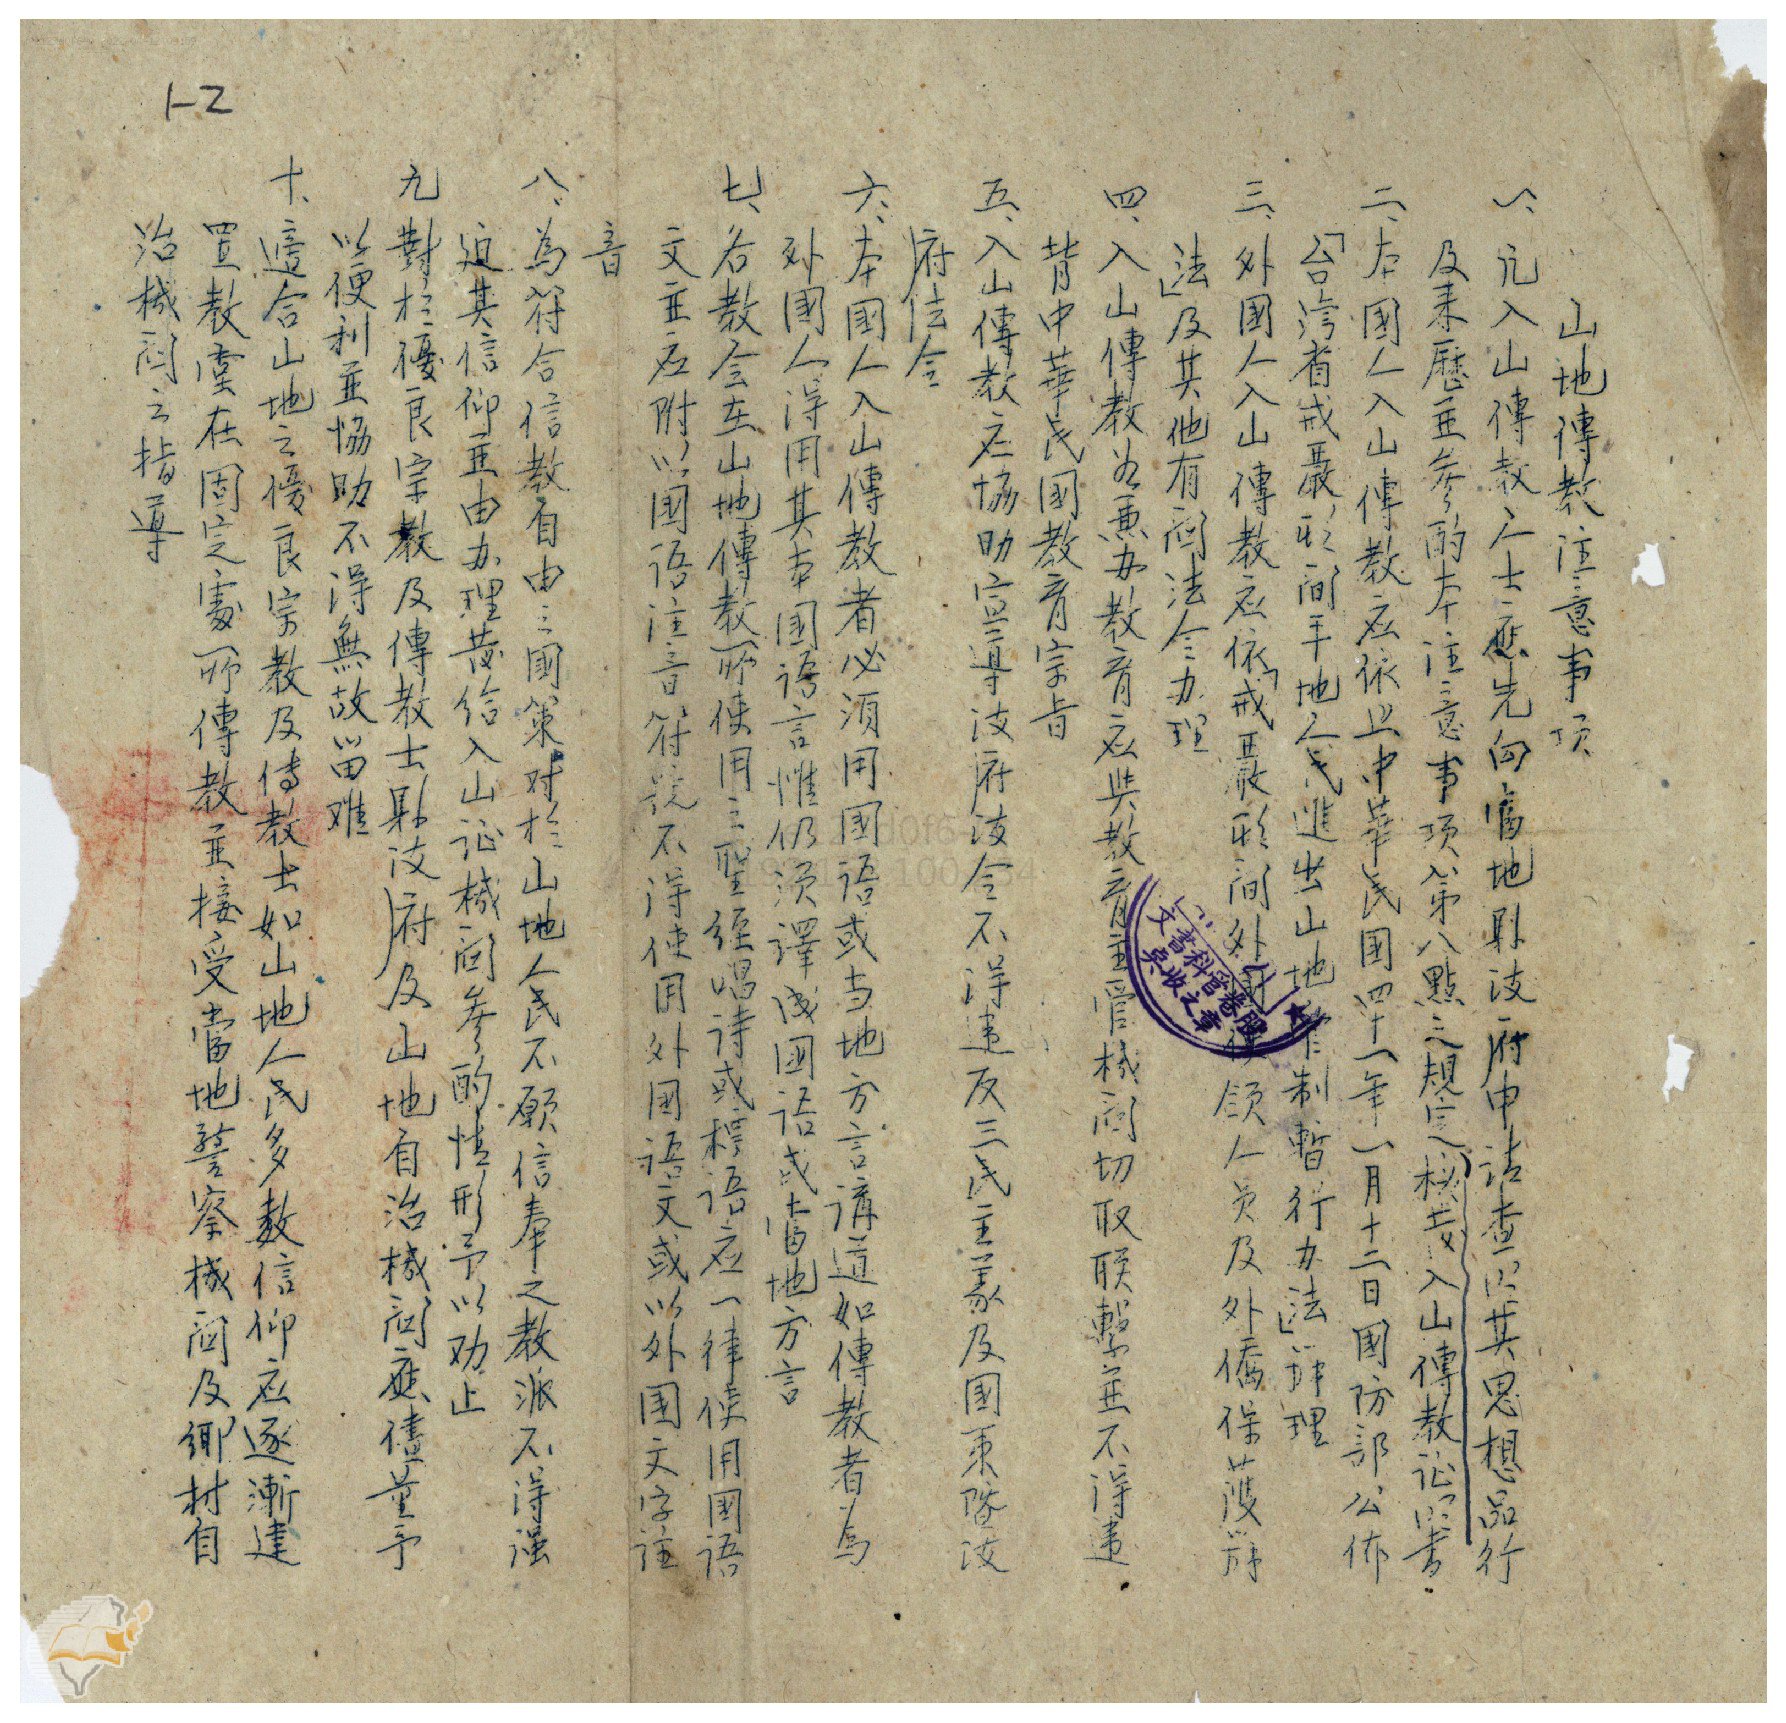 1-2
山地傳教注意事項
一、凡入山傳教人士應先向當地縣政府申請查明其思想品行
及来歷並參酌本注意事項第八點之規定核發入山傳教证明書
二、本國人入山傳教应依照中華民國四十一年一月十二日國防部公佈
「台湾省戒嚴形間平地人民進出山地管制暫行办法」辦理
三、外國人入山傳教应依「戒嚴形間外國使領人員及外僑保護辦
法」及其他有関法令办理
四、入山傳教若兼办教育应與教育主管機関切取联繫並不得違
背中華民國教育宗旨
五、入山傳教应協助宣導政府政令不得違反三民主義及國策暨政
府法令
六、本國人入山傳教者必須用國語或当地方言講道如傳教者為
外國人得用其本國語言惟仍須譯成國語或當地方言
七、各教会在山地傳教所使用之聖經唱詩或標語应一律使用國語
文並应附以國語注音符號不得使用外國語文或以外國文字註
音
八、為符合信教自由之國策对於山地人民不願信奉之教派不得强
迫其信仰並由办理發給入山证機関參酌情形予以劝止
九對於優良宗教及傳教士縣政府及山地自治機関應儘量予
以便利並協助不得無故留难
十、適合山地之優良宗教及傳教士如山地人民多數信仰应逐漸建
置教堂在固定處所傳教並接受當地警察機関及鄉村自
治機関之指導
文書科管卷股
點收之章